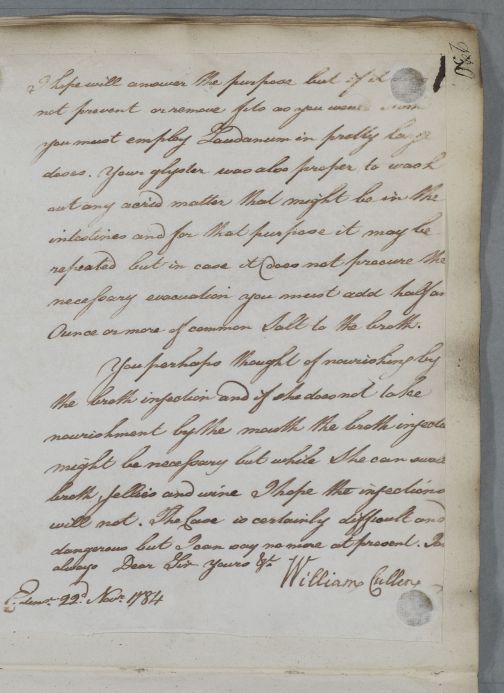 I hope will answer the purpose but if it does
not prevent or remove fits as you went
you must employ Laudanum in pretty large
doses. Your glyster was also proper to wash
out any acrid matter that might be in the
intestines and for that purpose it may be
repeated but in case it does not procure the
necessary evacuation you must add half an
Ounce or more of common Salt to the broth.
You perhaps thought of nourishing by
the broth injection and if she does not take
nourishment by the mouth the broth injecti
might be necessary but while She can swal
broth Jellies and wine I hope the injections
will not. The Case is certainly difficult and
dangerous but I can say no more at present. I am
always Dear Sir yours &c.
William Cullen
22d. Novr. 1784